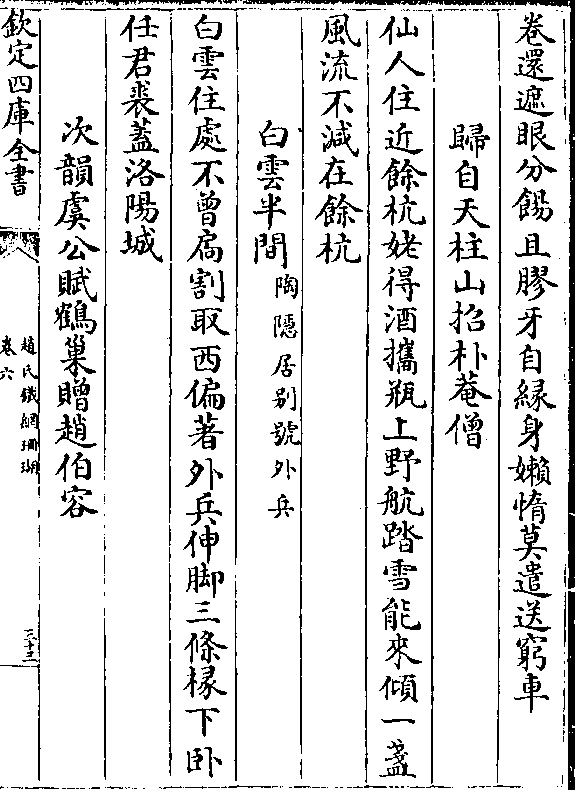 卷還遮眼分餳且膠牙自緣身嬾惰莫遣送窮車
歸自天柱山招朴菴僧
仙人住近餘杭姥得酒攜瓶上野航踏雪能來傾一盞
風流不減在餘杭
白雲半間陶隱居别號外兵
白雲住處不曾扃割取西偏著外兵伸脚三條椽下卧
任君裘蓋洛陽城
次韻虞公賦鶴巢贈趙伯容
欽定四庫全書
趙氏鐵網珊瑚
卷六
三十三